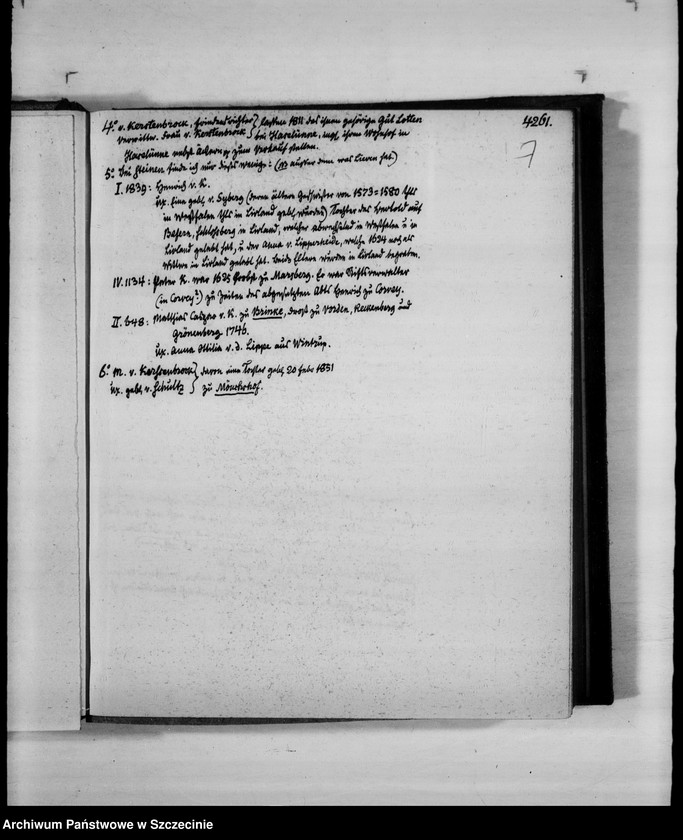 4261.
7
4.° v. Kerstenbrock, Friedensrichter } hatten 1811 das ihnen gehörige Gut Lotten
Verwittw. Frau v. Kerstenbrock } bei Haselünne, nebst ihrem Wohnhof in
Haselünne nebst Äckern zum Verkauf stellen.
5.° bei Steinen finde ich nur dieses wenige: ( außer dem was Lieven hat.)
I. 1839: Henrich v. K.
ux. Eine geb. v. Syberg (deren ältere Geschwister von 1573 = 1580 theils
in Westfalen theils in Livland geb. wurden) Tochter des auf
in Livland, welcher abwechselnd in Westfalen u in
Livland gelebt hat, u der Anna v. Lipperheide, welche 1634 noch als
Wittwe in Livland gelebt hat. beide Eltern wurden in Livland begraben.
IV. 1134: Peter K. war 1625 Probst zu Marsberg. Er war Stiftsverwalter
(in Corvey?) zu Zeiten des abgesetzten Abts Henrich zu Corvey.
II. 648: Matthias Casper v. K. zu Brinke, Drost zu Vörden, Reckenberg und
Grönenberg 1746.
ux. Anna Ottilia v. d. Lippe aus Wintrup.
6.° M. v. Kerssenbrock } deren eine Tochter geb. 20 Febr 1851
ux. geb. v. Schultz } zu Mönchshof.
Archiwum Państwowe w Szczecinie